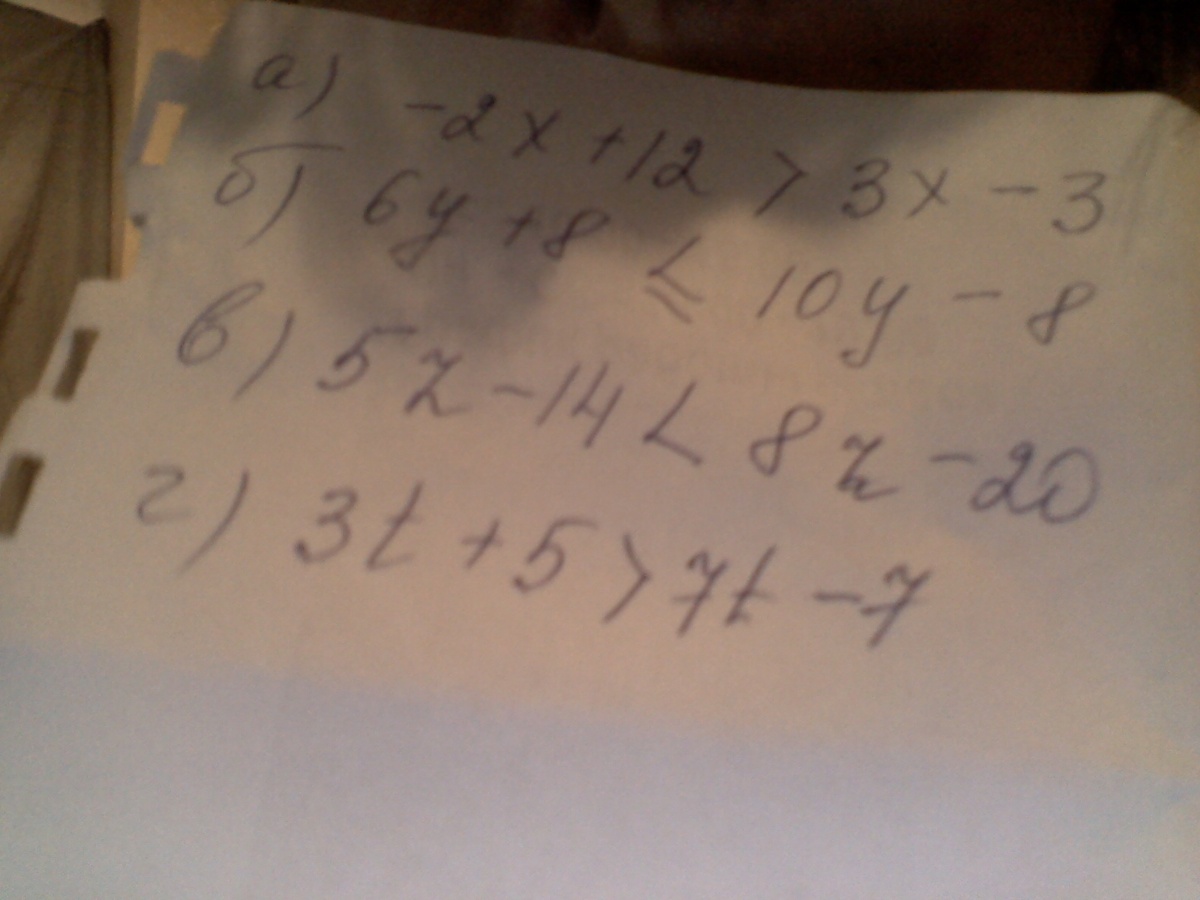 а) -2x + 12 > 3x - 3
б) 6y + 8 ≤ 10y - 8
в) 5z - 14 < 8z - 20
г) 3t + 5 > 7t - 7